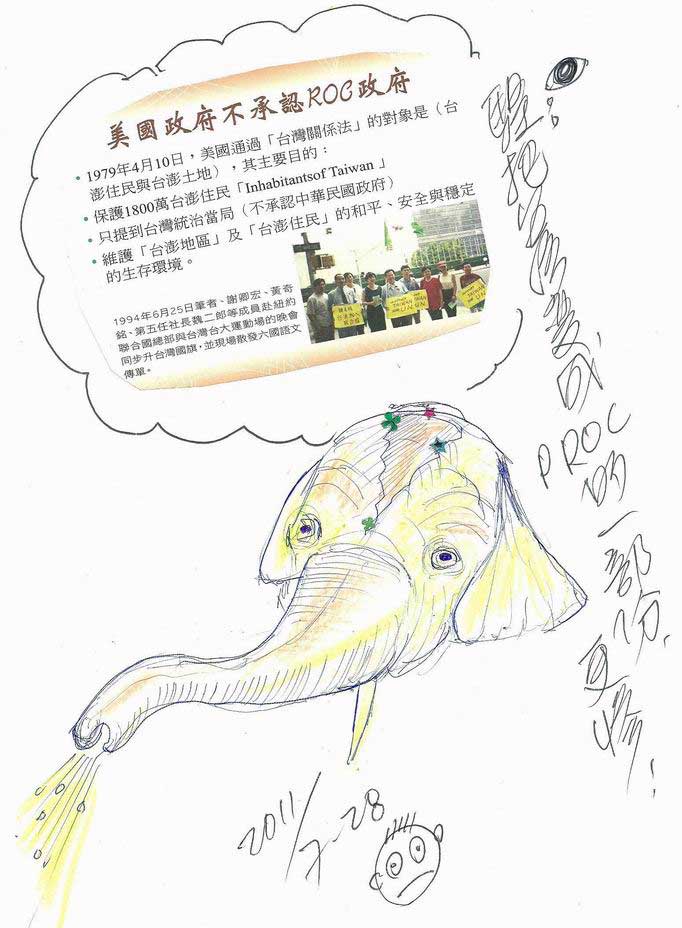 美國政府不承認ROC政府
• 1979年4月10日，美國通過「台灣關係法」的對象是（台
澎住民與台澎土地），其主要目的：
• 保護1800萬台澎住民「Inhabitantsof Taiwan」
• 只提到台灣統治當局（不承認中華民國政府）
• 維護「台澎地區」及「台澎住民」的和平、安全與穩定
的生存環境。
1994年6月25日筆者、謝卿宏、黃奇
銘、第五任社長魏二郎等成員赴紐約
聯合國總部與台灣台大運動場的晚會
同步升台灣國旗，並現場散發六國語文
傳單。
把台灣變成 PROC的一部份,更慘!
2011/7-28